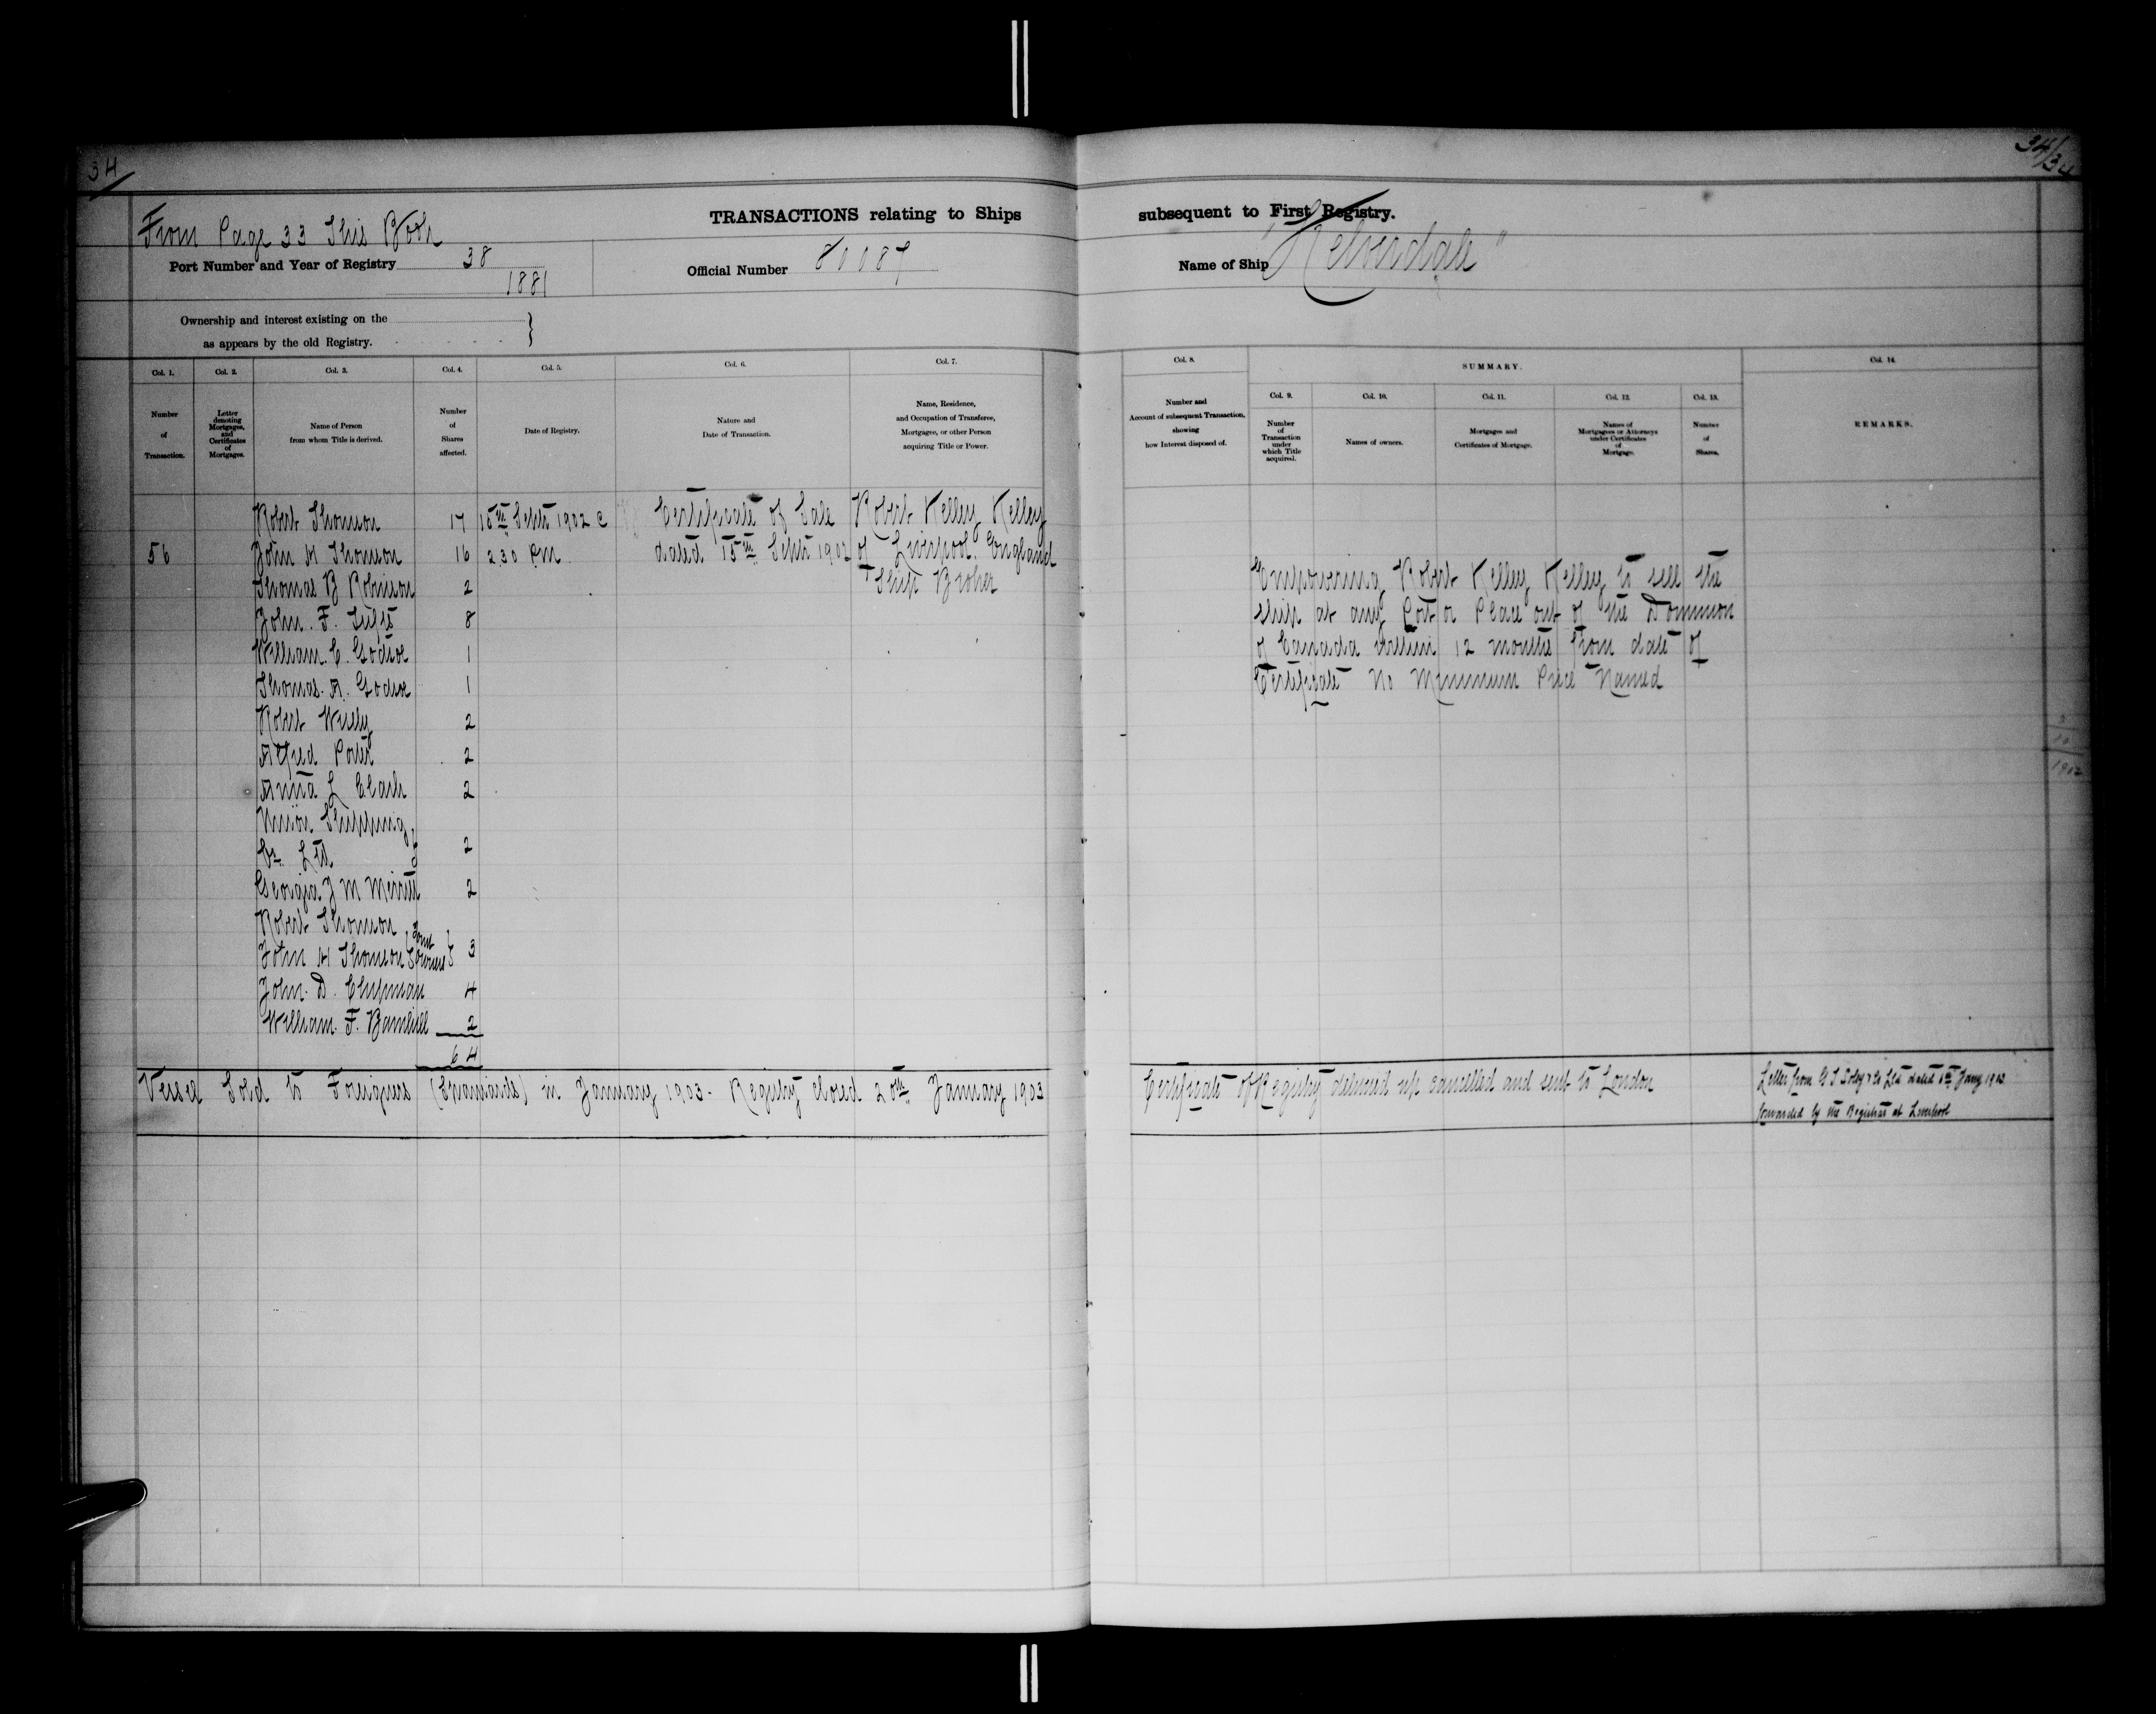 34
34/34
TRANSACTIONS relating to Ships subsequent to First Registry.
From Page 33 This Book
Port Number and Year of Registry 38
1881
Official Number 80087
Name of Ship "Kelverdale"
Ownership and interest existing on the
as appears by the old Registry.
Col. 1.
Number
of
Transaction.
Col. 2.
Letter
denoting
Mortgages,
and
Certificates
of
Mortgages.
Col. 3.
Name of Person
from whom Title is derived.
Col. 4.
Number
of
Shares
affected.
Col. 5.
Date of Registry.
Col. 6.
Nature and
Date of Transaction.
Col. 7.
Name, Residence,
and Occupation of Transferee,
Mortgagee, or other Person
acquiring Title or Power.
Col. 8.
Number and
Account of subsequent Transaction,
showing
how Interest disposed of.
SUMMARY.
Col. 9.
Number
of
Transaction
under
which Title
acquired.
Col. 10.
Names of owners.
Col. 11.
Mortgages and
Certificates of Mortgage.
Col. 12.
Names of
Mortgagees or Attorneys
under Certificates
of
Mortgage.
Col. 13.
Number
of
Shares.
Col. 14.
REMARKS.
Robert Thomson 17 15th Septr 1902 @ Certificate of Sale Robert Kelley Kelley
56 John H Thomson 16 2.30 PM dated 15th Septr 1902 of Liverpool, England
Thomas B Robinson 2 Ship Broker
John. F. Tufts 8
William. C. Godsoe 1
Thomas. A. Godsoe 1
Robert Wiely 2
Alfred Porter 2
Anna L Clark 2
Union Shipping
Co. Ltd 2
Georgia J M Merritt 2
Robert Thomson
John H Thomson Joint owners 3
John. D. Chipman 4
William. F. Barnhill 2
64
Empowering Robert Kelley Kelley to sell the
ship at any Port or Place out of the Dominion
of Canada within 12 months from date of
Certificate No Minimum Price Named
1902
Vessel Sold to Foreigners (Spaniards) in January 1903. Registry closed 20th January 1903
Certificate of Registry delivered up cancelled and sent to London
Letter from Ltd dated Jany 1903
forwarded by the Registrar at Liverpool